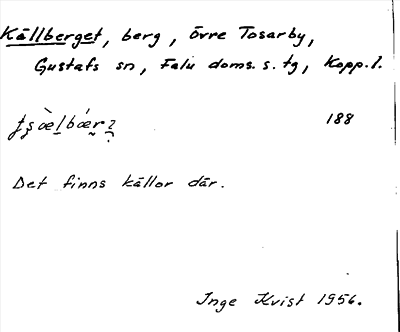 Källberget, berg, Övre Tosarby,
Gustafs sn, Falu doms.s. tg, Kopp. l.
188
Det finns källor där.
Inge Kvist 1956.